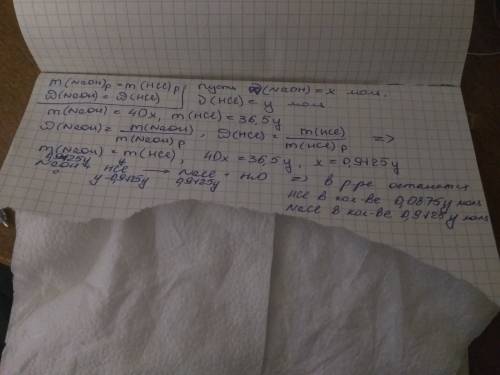 m(NaOH)р = m(HCl)р | пусть ν(NaOH) = x моль,
ω(NaOH) = ω(HCl) | ν(HCl) = y моль
m(NaOH) = 40x, m(HCl) = 36,5y
ω(NaOH) = m(NaOH)/m(NaOH)р, ω(HCl) = m(HCl)/m(HCl)р =>
m(NaOH) = m(HCl), 40x = 36,5y, x = 0,9125y
0,9125y
NaOH + HCl → NaCl + H₂O => в р-ре останется
0 y-0,9125y 0,9125y HCl в кол-ве 0,0875y моль
NaCl в кол-ве 0,9125y моль